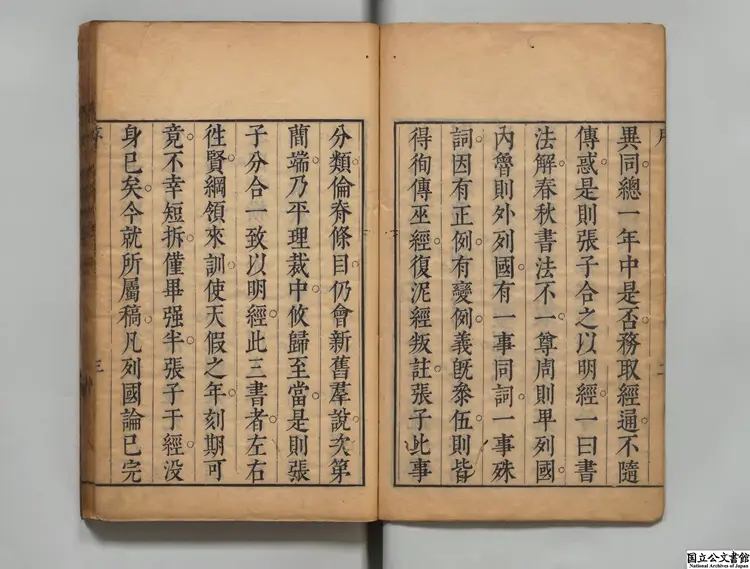 異同總一年中是否務取經通不隨
傳惑是則張子合之以明經一曰書
法解春秋書法不一尊周則卑列國
內魯則外列國有一事同詞一事殊
詞因有正例有變例義旣叅伍則皆
得徇傳巫經復泥經叛註張子此事
分類倫脊條目仍會新舊羣說次第
蕳端乃平理裁中攸歸至當是則張
子分合一致以明經此三書者左右
徃賢綱領來訓使天假之年刻期可
竟不幸短拆僅畢强半張子于經没
身已矣今就所屬稿凡列國論已完
序
三
国立公文書館
National Archives of Japan